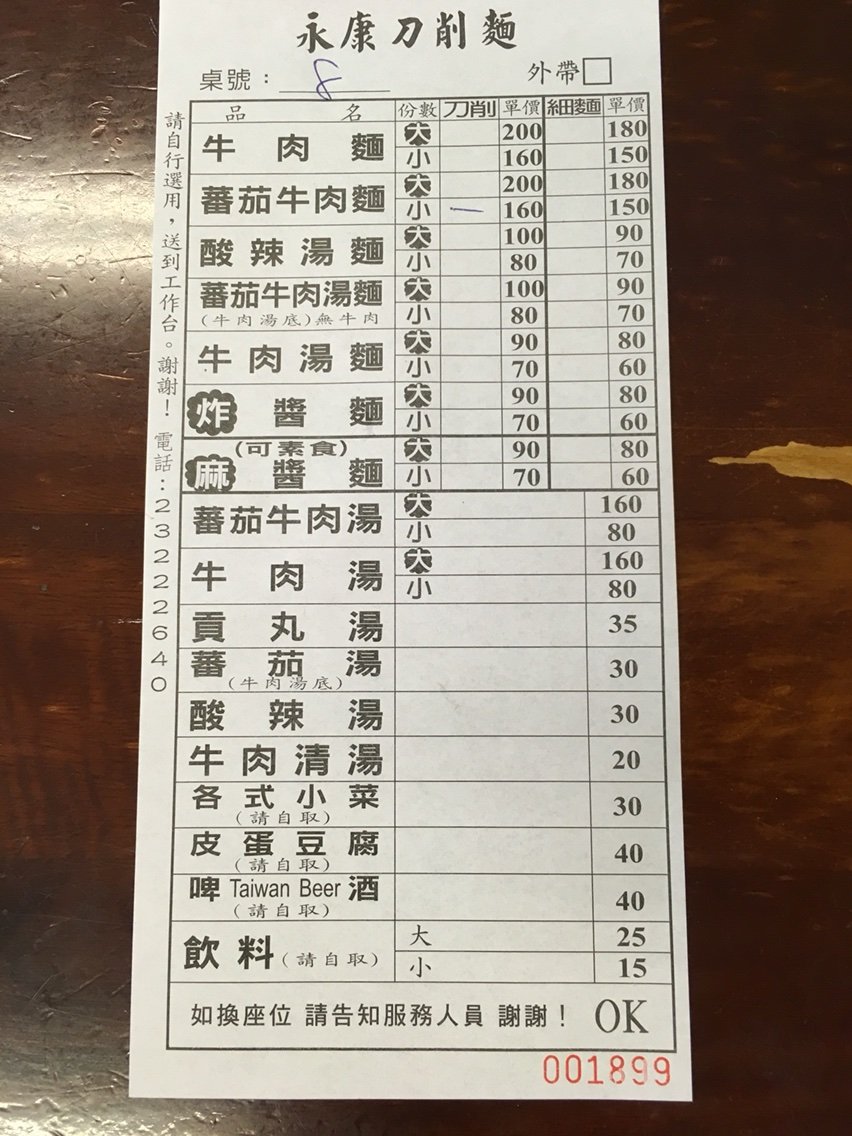 永康刀削麵
桌號： 8 外帶□
品名 份數 刀削 單價 細麵 單價
牛肉麵 大 200 180
小 160 150
蕃茄牛肉麵 大 200 180
小 一 160 150
酸辣湯麵 大 100 90
小 80 70
蕃茄牛肉湯麵 大 100 90
(牛肉湯底)無牛肉 小 80 70
牛肉湯麵 大 90 80
小 70 60
炸醬麵 大 90 80
小 70 60
(可素食) 大 90 80
麻醬麵 小 70 60
蕃茄牛肉湯 大 160
小 80
牛肉湯 大 160
小 80
貢丸湯 35
蕃茄湯 30
(牛肉湯底)
酸辣湯 30
牛肉清湯 20
各式小菜 30
(請自取)
皮蛋豆腐 40
(請自取)
啤 Taiwan Beer 酒 40
(請自取)
飲料(請自取) 大 25
小 15
如換座位 請告知服務人員 謝謝！ OK
001899
請自行選用，送到工作台。謝謝！ 電話：23222640